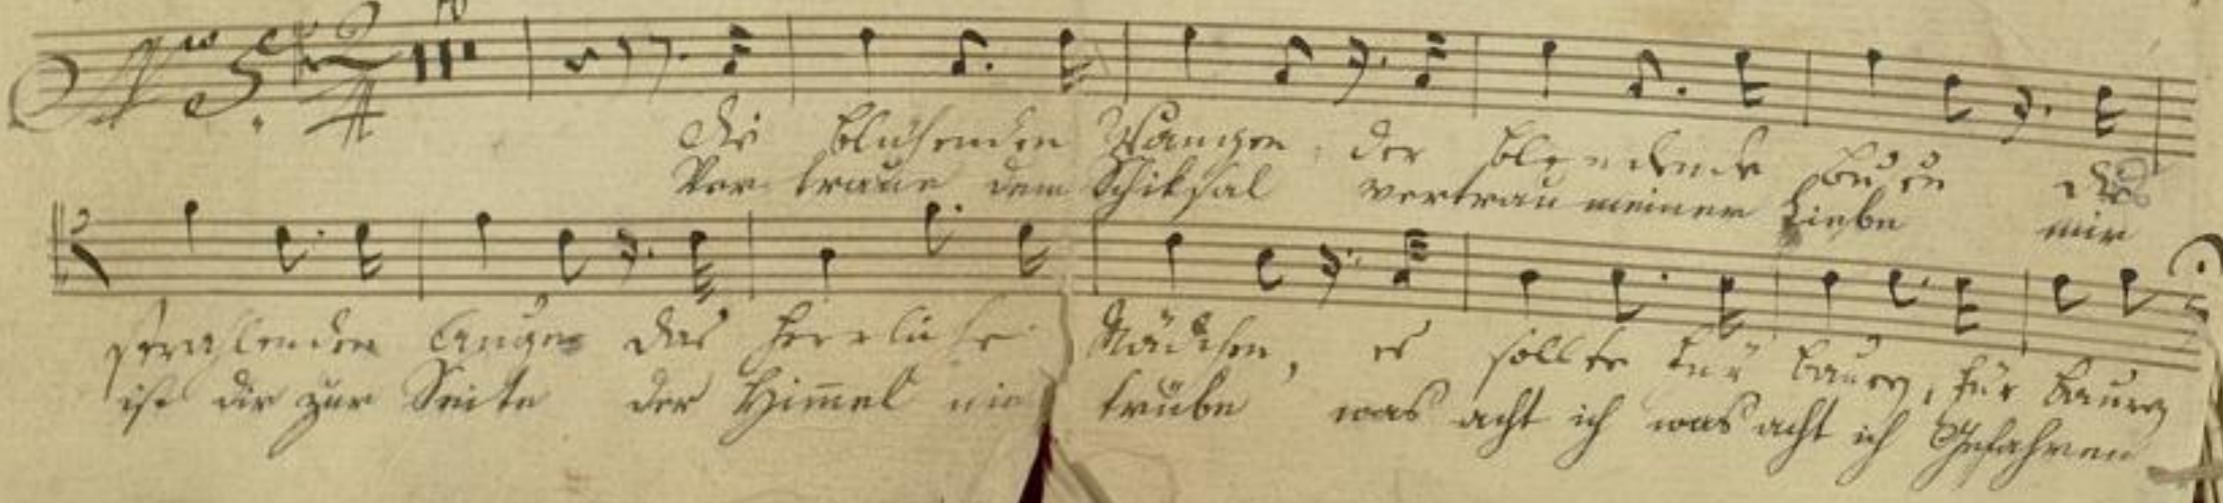 No 5.
Die blühenden Wangen, der blendende Busen die
Ver traue dem Schiksal vertrau meiner Liebe mir
strahlenden Augen das herrliche Mädchen, es sollte für Bauern, für Bauern
ist dir zur Seite der Him̄el nie trübe was acht ich was acht ich Gefahren